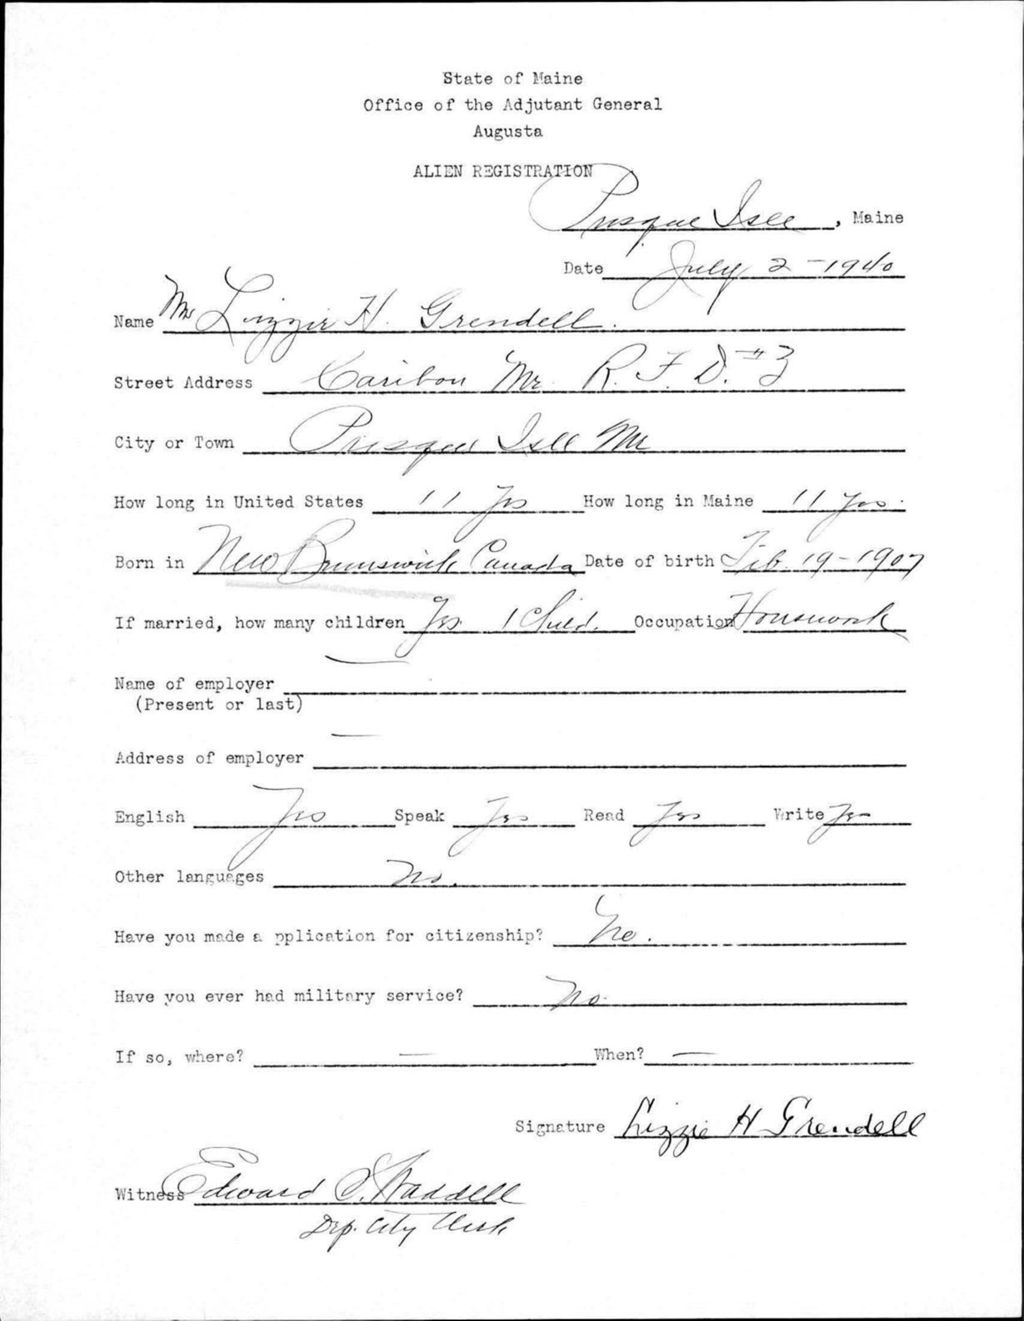 State of Maine
Office of the Adjutant General
Augusta
ALIEN REGISTRATION
Presque Isle, Maine
Date July 2 - 1940
Name Mrs Lizzie H. Grendell.
Street Address Caribou Me. R. F. D. #3
City or Town Presque Isle Me
How long in United States 11 yrs How long in Maine 11 yrs.
Born in New Brunswick Canada Date of birth Feb. 19 - 1907
If married, how many children Yes 1 Child. Occupation Housework
Name of employer —
(Present or last)
Address of employer —
English Yes Speak Yes Read Yes Write Yes
Other languages No.
Have you made a pplication for citizenship? No.
Have you ever had military service? No.
If so, where? — When? —
Signature Lizzie H Grendell
Witness Edward Waddell
Dep. City Clerk